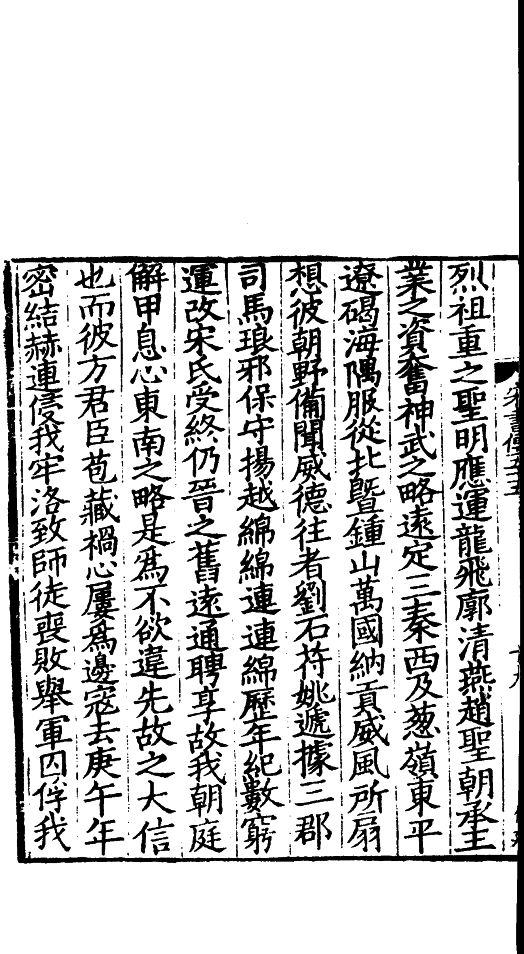 烈祖重之聖明應運龍飛廓清燕趙聖朝承王
業之資奮神武之略遠定三秦西及葱嶺東平
遼碣海隅服從北曁鍾山萬國納貢威風所扇
想彼朝野備聞威德往者劉石苻姚遞據三郡
司馬琅邪保守揚越綿綿連連綿歷年紀數窮
運改宋氏受終仍晉之舊遠通聘享故我朝庭
解甲息心東南之略是爲不欲違先故之大信
也而彼方君臣苞藏禍心屢爲邊寇去庚午年
密結赫連侵我牢洛致師徒喪敗舉軍囚俘我